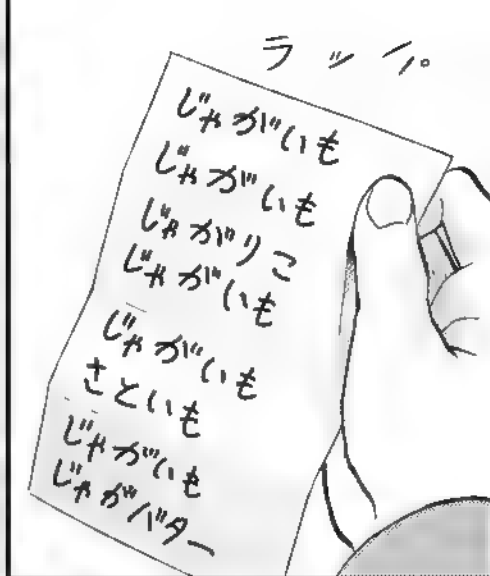 ラップ
じゃがいも
じゃがいも
じゃがりこ
じゃがいも
じゃがいも
さといも
じゃがいも
じゃがバター